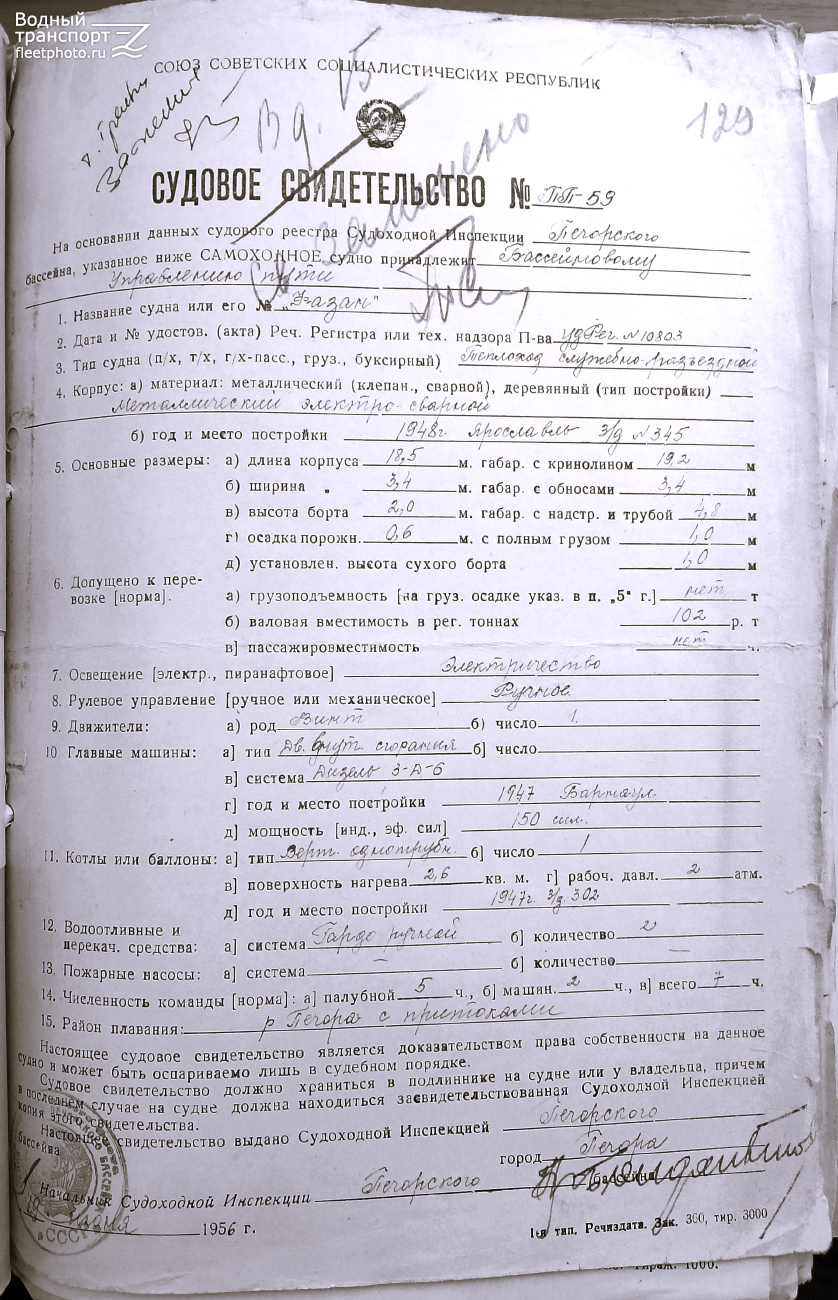 Водный
транспорт
fleetphoto.ru
СОЮЗ СОВЕТСКИХ СОЦИАЛИСТИЧЕСКИХ РЕСПУБЛИК
129
Заменено
СУДОВОЕ СВИДЕТЕЛЬСТВО № ПП-59
На основании данных судового реестра Судоходной Инспекции Печорского
бассейна, указанное ниже САМОХОДНОЕ судно принадлежит Бассейновому
Управлению пути
1. Название судна или его № „Казан"
2. Дата и № удостов. (акта) Реч. Регистра или тех. надзора П-ва уд Рег. N 10803
3. Тип судна (п/х, т/х, г/х-пасс., груз., буксирный) Теплоход служебно-разъездной
4. Корпус: а) материал: металлический (клепан., сварной), деревянный (тип постройки)
Металлический электро-сварной
б) год и место постройки 1948г. Ярославль з/д N 345
5. Основные размеры: а) длина корпуса 18,5 м. габар. с кринолином 19,2 м
б) ширина „ 3,4 м. габар. с обносами 3,4 м
в) высота борта 2,0 м. габар. с надстр. и трубой 4,8 м
г) осадка порожн. 0,6 м. с полным грузом 1,0 м
д) установлен. высота сухого борта 1,0 м
6. Допущено к пере-
возке [норма]. а) грузоподъемность [на груз. осадке указ. в п. „5" г.] нет т
б) валовая вместимость в рег. тоннах 102 р. т
в] пассажировместимость нет ч.
7. Освещение [электр., пиранафтовое] Электричество
8. Рулевое управление [ручное или механическое] Ручное
9. Движители: а) род Винт б) число 1.
10 Главные машины: а] тип Дв. внут. сгорания б] число
в] система Дизель 3-Д-6
г] год и место постройки 1947 Барнаул
д] мощность [инд., эф. сил] 150 сил.
11. Котлы или баллоны: а] тип Верт. однотрубн. б] число 1
в] поверхность нагрева 2,6 кв. м. г] рабоч. давл. 2 атм.
д] год и место постройки 1947г. з/д. 302
12. Водоотливные и
перекач. средства: а] система Гардо ручной б] количество 2
13. Пожарные насосы: а] система — б] количество —
14. Численность команды [норма]: а] палубной 5 ч., б] машин. 2 ч., в] всего 7 ч.
15. Район плавания: р Печора с притоками
Настоящее судовое свидетельство является доказательством права собственности на данное
судно и может быть оспариваемо лишь в судебном порядке.
Судовое свидетельство должно храниться в подлиннике на судне или у владельца, причем
в последнем случае на судне должна находиться засвидетельствованная Судоходной Инспекцией
копия этого свидетельства.
Настоящее свидетельство выдано Судоходной Инспекцией Печорского
бассейна город Печора
Начальник Судоходной Инспекции Печорского бассейна
19 июня 1956 г.
СССР
1-я тип. Речиздата. Зак. 360, тир. 3000
Тираж. 1000.